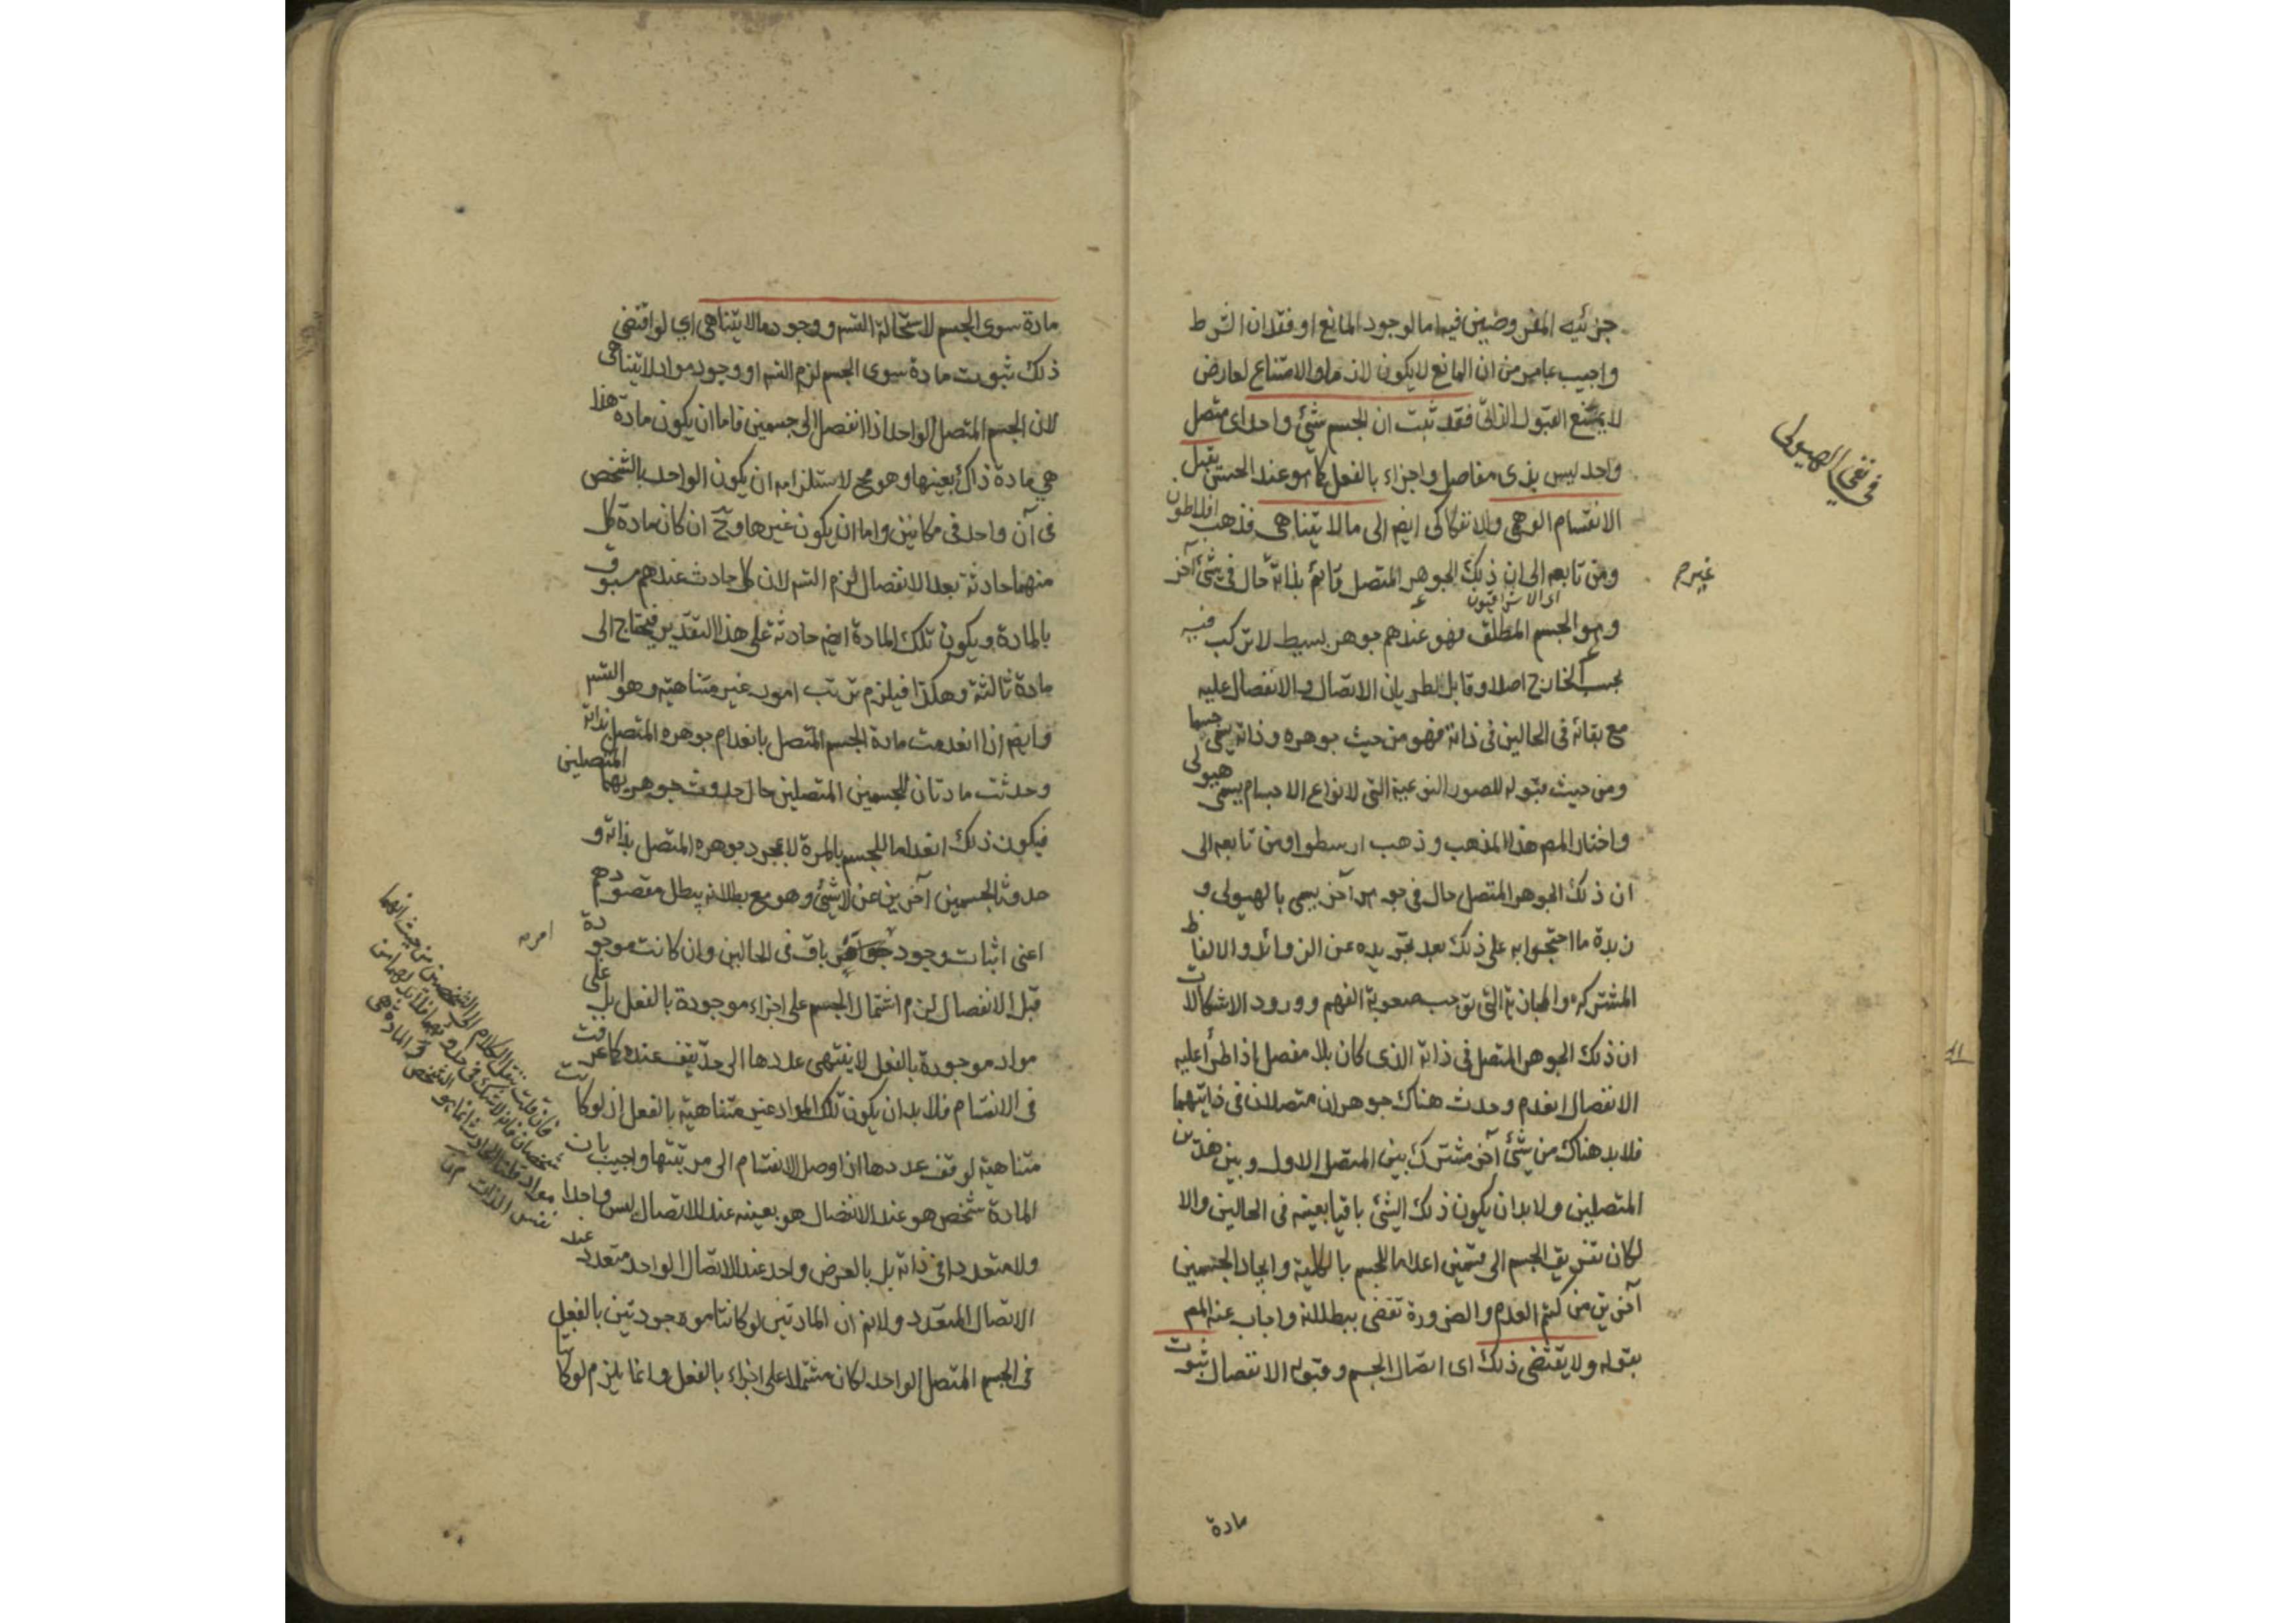 في نفي الهيولى
جزئيه المفروضين فيه اما لوجود المانع او فقدان الشرط
واجيب عنا من ان المانع لا يكون لازما والامتناع لعارض
لا يمنع القبول الذاتي فقد ثبت ان الجسم شئ واحد اى متصل
واحد ليس بذى مفاصل واجزاء بالفعل كما هو عند الحس يقبل
الانقسام الوهمى والانفكاكى ايضا الى ما لا يتناهى فذهب افلاطون
ومن تابعه الى ان ذلك الجوهر المتصل قائم بذاته حال فى شئ آخر
غير
اى الاشراقيون
وهو الجسم المطلق فهو عندهم جوهر بسيط لا تركب فيه
بحسب الخارج اصلا وقابل لطريان الاتصال والانفصال عليه
مع بقائه فى الحالين فى ذاته فهو من حيث جوهره وذاته يسمى جسما
ومن حيث قبوله للصور النوعية التى لانواع الاجسام يسمى هيولى
واختار المص هذا المذهب وذهب ارسطو ومن تابعه الى
ان ذلك الجوهر المتصل حال فى جوهر آخر يسمى بالهيولى و
زبدة ما احتجوا به على ذلك بعد تجريده عن الزوائد والالفاظ
المشتركة والمجازية التى توجب صعوبة الفهم وورود الاشكالات
ان ذلك الجوهر المتصل فى ذاته الذى كان بلا مفصل اذا طرأ عليه
الانفصال انعدم وحدث هناك جوهران متصلان فى ذاتيهما
فلا بد هناك من شئ آخر مشترك بين المتصل الاول وبين هذين
المتصلين ولا بد ان يكون ذلك الشئ باقيا بعينه فى الحالين والا
لكان تفريق الجسم الى قسمين اعداما للجسم بالكلية وايجاد الجسمين
آخرين من كتم العدم والضرورة تقضى ببطلانه واجاب عنه المص
بقوله ولا يقتضى ذلك اى اتصال الجسم وقبوله الانفصال ثبوت
مادة
مادة سوى الجسم لاستحالة التسم ووجود ما لا يتناهى اى لو اقتضى
ذلك ثبوت مادة سوى الجسم لزم التسم او وجود مواد لا يتناهى
لان الجسم المتصل الواحد اذا انفصل الى جسمين فاما ان يكون مادة هذا
هى مادة ذاك بعينها وهو مح لاستلزامه ان يكون الواحد بالشخص
فى آن واحد فى مكانين واما ان يكون غيرها وح ان كان مادة كل
منهما حادثة بعد الانفصال لزم التسم لان كل حادث عندهم مسبوق
بالمادة ويكون تلك المادة ايضا حادثة على هذا التقدير فيحتاج الى
مادة ثالثة وهكذا فيلزم ترتب امور غير متناهية وهو التسم
وايضا اذا انعدمت مادة الجسم المتصل بانعدام جوهره المتصل بذاته
وحدثت مادتان للجسمين المتصلين حال حدوث جوهريهما المتصلين
فيكون ذلك انعداما للجسم بالمرة لا بمجرد جوهره المتصل بذاته و
حدوث الجسمين آخرين عن لا شئ وهو مع بطلانه يبطل مقصودهم
اعنى اثبات وجود باق فى الحالين وان كانت موجودة
امر
قبل الانفصال لزم اشتمال الجسم على اجزاء موجودة بالفعل بل على
مواد موجودة بالفعل لا ينتهى عددها الى حد يقف عنده كما عرفت
فى الانقسام فلا بد ان يكون تلك المواد غير متناهية بالفعل اذ لو كانت
متناهية لوقف عددها اذا وصل الانقسام الى مرتبتها واجيب بان
المادة شخص هو عند الانفصال هو بعينه عند الاتصال ليس واحدا
ولا متعددا فى ذاته بل بالعرض واحد عند الاتصال الواحد متعدد عند
الاتصال المتعدد ولا نم ان المادتين لو كانتا موجودتين بالفعل
فى الجسم المتصل الواحد لكان مشتملا على اجزاء بالفعل وانما يلزم لو كانتا
فان قلت ننقل الكلام الى الشخصين من حيث انهما
شخصان فانه لا شك فى حدوثهما فلا بد لهما من
مواد قلنا الحادث انما هو الشخص والمادة هى
نفس الذات